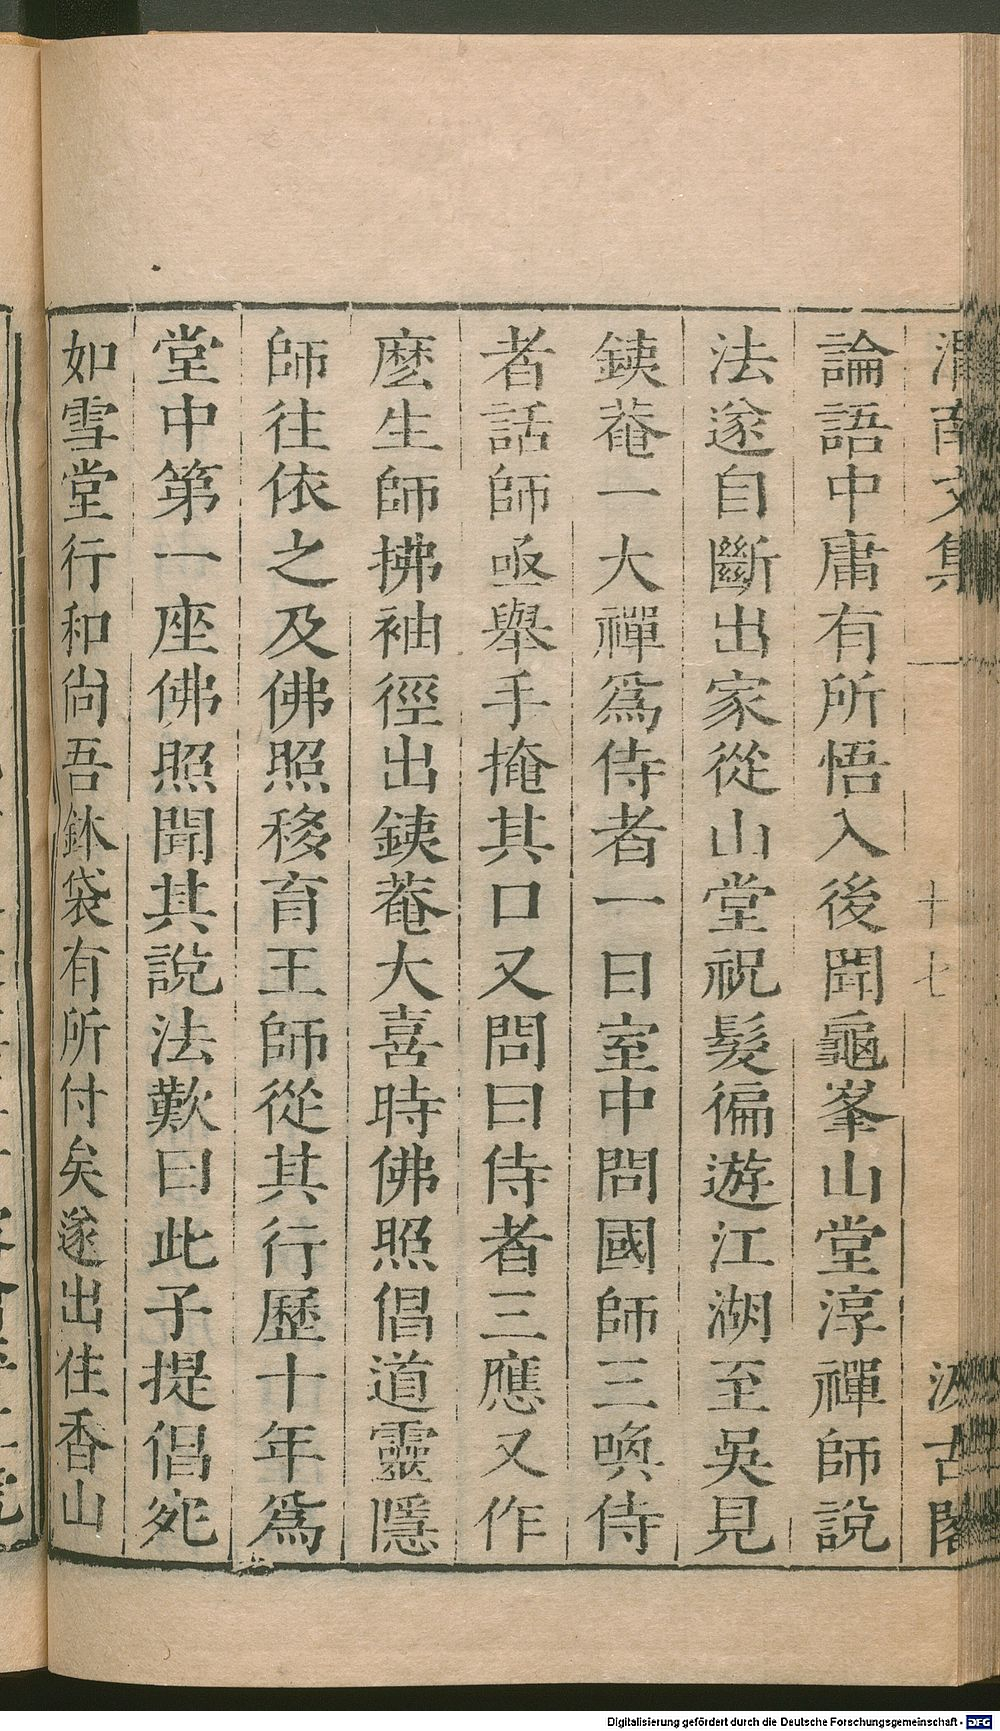 渭南文集
十七
汲古閣
論語中庸有所悟入後聞龜峯山堂淳禪師說
法遂自斷出家從山堂祝髮徧遊江湖至吳見
銕菴一大禪爲侍者一日室中問國師三喚侍
者話師亟舉手掩其口又問曰侍者三應又作
麽生師拂袖徑出銕菴大喜時佛照倡道靈隱
師往依之及佛照移育王師從其行歷十年爲
堂中第一座佛照聞其說法歎曰此子提倡宛
如雪堂行和尙吾鉢袋有所付矣遂出住香山
Digitalisierung gefördert durch die Deutsche Forschungsgemeinschaft - DFG